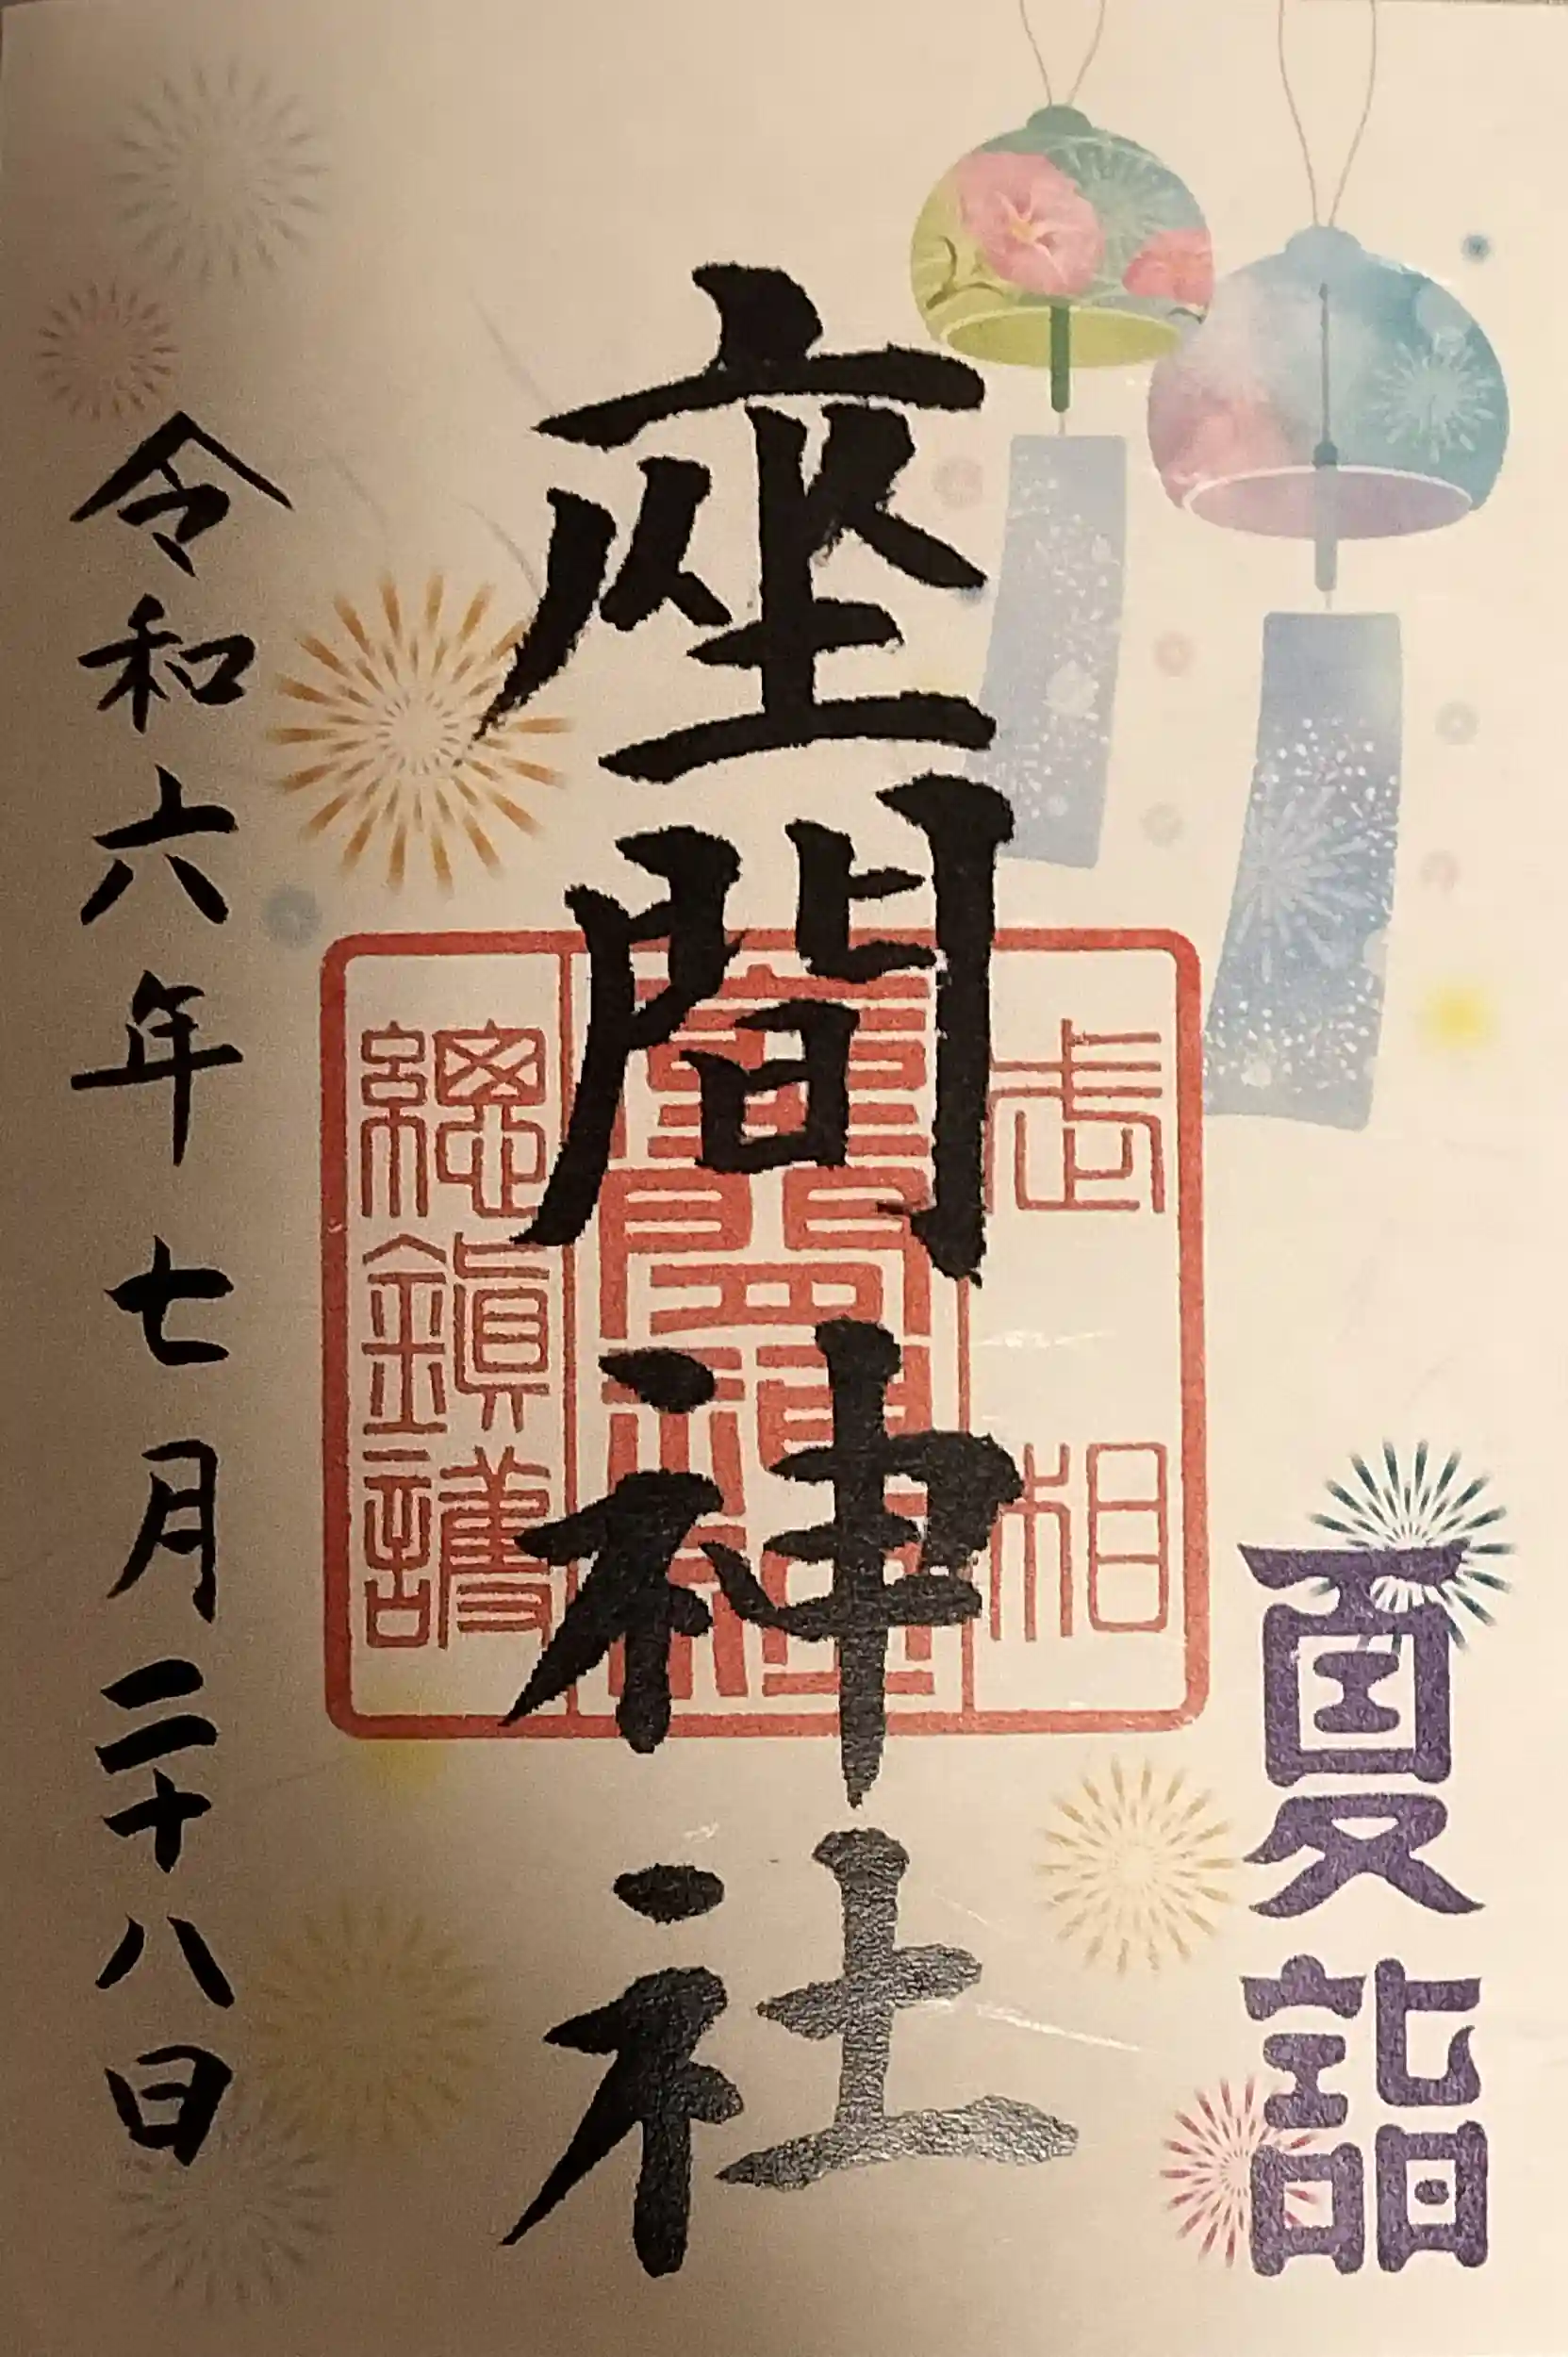 夏詣
座間神社
相武
座間神社
總鎮護
令和六年七月二十八日